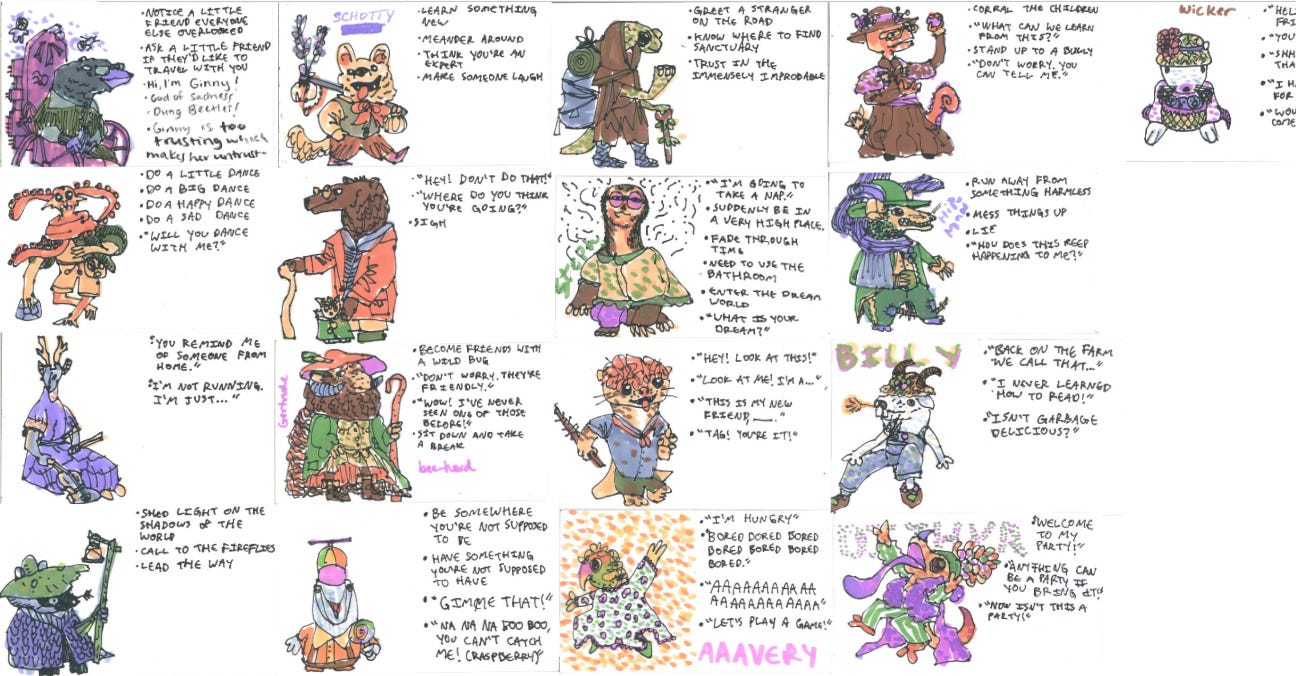 • NOTICE A LITTLE
FRIEND EVERYONE
ELSE OVERLOOKED
• ASK A LITTLE FRIEND
IF THEY'D LIKE TO
TRAVEL WITH YOU
• Hi, I'm Ginny!
God of sadness
Dung Beetles!
• Ginny is too
trusting which
makes her untrust-
SCHOTTY
• LEARN SOMETHING
NEW
• MEANDER AROUND
• THINK YOU'RE AN
EXPERT
• MAKE SOMEONE LAUGH
• GREET A STRANGER
ON THE ROAD
• KNOW WHERE TO FIND
SANCTUARY
• TRUST IN THE
IMMENSELY IMPROBABLE
• CORRAL THE CHILDREN
• "WHAT CAN WE LEARN
FROM THIS?"
• STAND UP TO A BULLY
• "DON'T WORRY. YOU
CAN TELL ME."
Wicker
• "HEL
FRI
• "YOU
• "SHH
THA
• "I HA
FOR
• "WOU
COME
• DO A LITTLE DANCE
• DO A BIG DANCE
• DO A HAPPY DANCE
• DO A SAD DANCE
• "WILL YOU DANCE
WITH ME?"
• "HEY! DON'T DO THAT!"
• "WHERE DO YOU THINK
YOU'RE GOING?"
• SIGH
• "I'M GOING TO
TAKE A NAP."
• SUDDENLY BE IN
A VERY HIGH PLACE.
• FADE THROUGH
TIME
• NEED TO USE THE
BATHROOM
• ENTER THE DREAM
WORLD
• "WHAT IS YOUR
DREAM?"
• RUN AWAY FROM
SOMETHING HARMLESS
• MESS THINGS UP
• LIE
• "HOW DOES THIS KEEP
HAPPENING TO ME?"
• "YOU REMIND ME
OF SOMEONE FROM
HOME."
• "I'M NOT RUNNING.
I'M JUST..."
Gertrude
• BECOME FRIENDS WITH
A WILD BUG
• "DON'T WORRY. THEY'RE
FRIENDLY."
• "WOW! I'VE NEVER
SEEN ONE OF THOSE
BEFORE!"
• SIT DOWN AND TAKE
A BREAK
bee-herd
• "HEY! LOOK AT THIS!"
• "LOOK AT ME! I'M A..."
• "THIS IS MY NEW
FRIEND, ___."
• "TAG! YOU'RE IT!"
BILLY
• "BACK ON THE FARM
WE CALL THAT..."
• "I NEVER LEARNED
HOW TO READ!"
• "ISN'T GARBAGE
DELICIOUS?"
• SHED LIGHT ON THE
SHADOWS OF THE
WORLD
• CALL TO THE FIREFLIES
• LEAD THE WAY
• BE SOMEWHERE
YOU'RE NOT SUPPOSED
TO BE
• HAVE SOMETHING
YOU'RE NOT SUPPOSED
TO HAVE
• "GIMME THAT!"
• "NA NA NA BOO BOO,
YOU CAN'T CATCH
ME! (RASPBERRY)"
• "I'M HUNGRY"
• "BORED BORED BORED
BORED BORED BORED
BORED."
• "AAAAAAAAAAA
AAAAAAAAAAAA"
• "LET'S PLAY A GAME!"
AAAVERY
• "WELCOME
TO MY
PARTY!"
• "ANYTHING CAN
BE A PARTY IF
YOU BRING IT!"
• "NOW ISN'T THIS A
PARTY!"